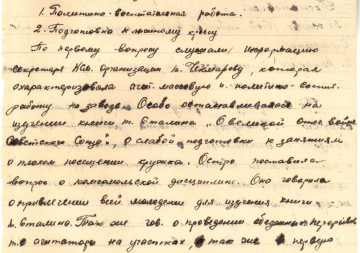 1. Политико-воспитательная работа.
2. Подготовка к лыжному кроссу
По первому вопросу слушали информацию
секретаря Ксм. организации т. которая
охарактеризовала агит-массовую и политико-воспит.
работу на заводе. Особо останавливалась на
изучении книги т. Сталина "О великой отеч. войне
Советского Союза", о слабой подготовке к занятиям
о плохом посещении кружка. Остро поставила
вопрос о комсомольской дисциплине. Она говорила
о привлечении всей молодежи для изучения книги
т. Сталина. Так же гов. о проведении
агитаторы на участках, так же первую